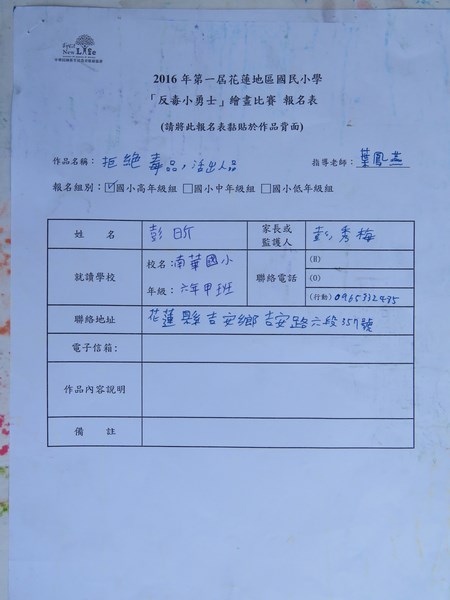 New Life
2016 年第一屆花蓮地區國民小學
「反毒小勇士」繪畫比賽 報名表
(請將此報名表黏貼於作品背面)
作品名稱：拒絕毒品，活出人品 指導老師：葉鳳燕
報名組別：☑國小高年級組 □國小中年級組 □國小低年級組
姓 名 彭昕 家長或監護人 彭秀梅
就讀學校 校名：南華國小 聯絡電話 (H)
(O)
年級：六年甲班 (行動) 0965332435
聯絡地址 花蓮縣吉安鄉吉安路六段357號
電子信箱：
作品內容說明
備 註